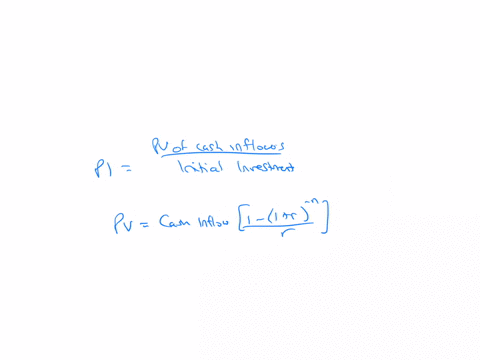 PI = PV of cash inflows / Initial Investment
PV = Cash Inflow [1-(1+r)^-n / r]